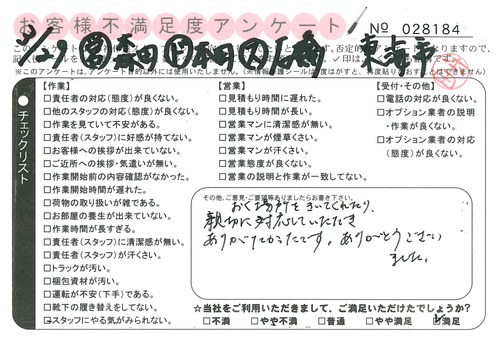 お客様不満足度アンケート
No 028184
東海市
チェックリスト
【作業】
□責任者の対応(態度)が良くない。
□他のスタッフの対応(態度)が良くない。
□作業を見ていて不安がある。
□責任者(スタッフ)に好感が持てない。
□お客様への挨拶が出来ていない。
□ご近所への挨拶・気遣いが無い。
□作業開始前の内容確認がなかった。
□作業開始時間が遅れた。
□荷物の取り扱いが雑である。
□お部屋の養生が出来ていない。
□作業時間が長すぎる。
□責任者(スタッフ)に清潔感が無い。
□責任者(スタッフ)が汗くさい。
□トラックが汚い。
□梱包資材が汚い。
□運転が不安(下手)である。
□靴下の履き替えをしてない。
□スタッフにやる気がみられない。
【営業】
□見積もり時間に遅れた。
□見積もり時間が長い。
□営業マンに清潔感が無い。
□営業マンが煙草くさい。
□営業マンが汗くさい。
□営業態度が良くない。
□営業の説明と作業が一致してない。
【受付・その他】
□電話の対応が良くない。
□オプション業者の説明
・作業が良くない。
□オプション業者の対応
(態度)が良くない。
その他、ご意見・ご要望等ありましたらお書き下さい。
おく場所をきいてくれたり、
親切に対応していただき
ありがたかったです。ありがとうござい
ました。
☆当社をご利用いただきまして、ご満足いただけたでしょうか?
□不満 □やや不満 □普通 □やや満足 ☑満足